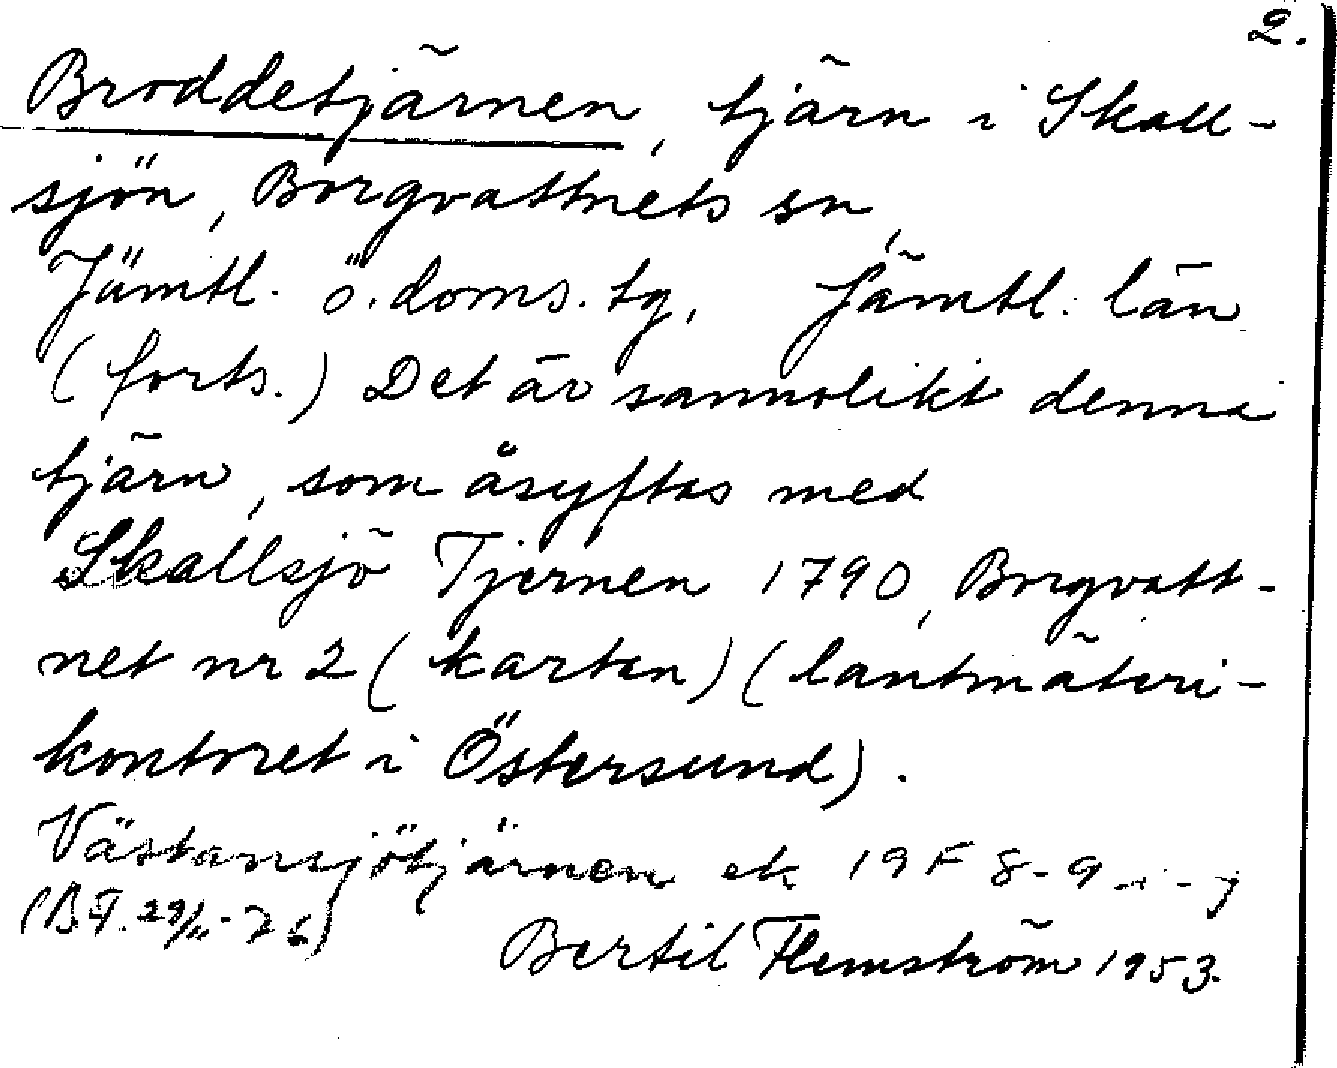 2.
Broddetjärnen, tjärn i Skall-
sjön, Borgvattnets sn,
Jämtl. ö. doms. tg, Jämtl. län
(forts.) Det är sannolikt denna
tjärn, som åsyftas med
Skallsjö Tjernen 1790, Borgvatt-
net nr 2 (kartan) (lantmäteri-
kontoret i Östersund).
Västansjötjärnen ek 19F 8-9 i-j
(B.F. 29/11-76)
Bertil Flemström 1953.